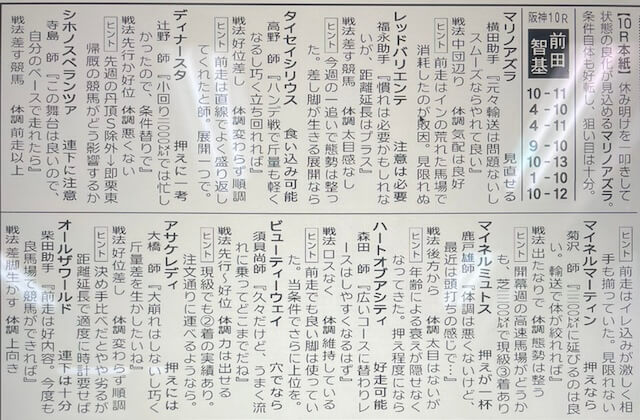 【10R本紙】休み明けを一叩きして
状態の良化が見込めるマリノアズラ。
条件自体も好転し、狙い目は十分。
阪神10R
前田智基
10-11
4-10
4-11
9-10
10-13
1-10
10-12
マリノアズラ 見直せる
横田助手『元々輸送は問題ないし
スムーズならやれて良い』
戦法中団辺り 気配は良好
ヒント 前走はインの荒れた馬場で
消耗したのが敗因。見限れぬ
レッドバリエンテ 注意は必要
福永助手『慣れは必要かもしれな
いが、距離延長はプラス』
戦法差す競馬 体調太目感なし
ヒント 今週の一追いで態勢は整っ
た。差し脚が生きる展開なら
タイセイシリウス 食い込み可能
高野 師『ハンデ戦で斤量も軽く
なるし巧く立ち回れれば』
戦法好位差し 体調変わらず順調
ヒント 前走は直線でよく盛り返し
てくれたと師。展開一つで。
ディナースタ 押えに一考
辻野 師『小回り二〇〇〇㍍では忙し
かったので、条件替りで』
戦法先行か好位 体調悪くない
ヒント 先週の丹頂Sを除外→即栗東
帰厩の競馬がどう影響するか
シホノスペランツァ 連下に注意
寺島 師『この舞台は良いので、
自分のペースで走れたら』
戦法差す競馬 体調前走以上
ヒント 前走はペースが激しく相
手も揃っていた。見限れない
マイネルマーティン 押えなら
菊沢 師『二三〇〇㍍に延びるのは良
い。輸送で体が絞れれば』
戦法出たなりで 体調態勢は整う
ヒント 開幕週の高速馬場がどうか
も、芝二三〇〇㍍で現級③着あり
マイネルミュトス 押えが一杯
鹿戸雄師『体調は悪くないけど、
最近は頭打ちの感じで…』
戦法後方から 体調太目はないが
ヒント 年齢による衰えが隠せなく
なってきた。押え程度になら
ハートオブアシティ 好走可能
森田 師『広いコースに替わりレ
ースはしやすくなるはず』
戦法ロスなく 体調維持している
ヒント 前走でも良い脚は使ってい
た。当条件でさらに上位を。
ビューティーウェイ 穴でなら
須貝尚師『久々だけど、うまく流
れに乗ってどこまでだね』
戦法先行〜好位 体調力は出せる
ヒント 現級でも②着の実績あり。
注文通りに運べるようなら。
アサケレディ 押えには
大橋 師『大崩れはしないし巧く
斤量差を生かしたいね』
戦法好位差し 体調変わらず順調
ヒント 決め手比べだとやや劣るが
距離延長で適度に時計要せば
オールザワールド 連下は十分
柴田助手『前走は好内容。今度も
良馬場で競馬ができれば』
戦法差脚生かす 体調上向き